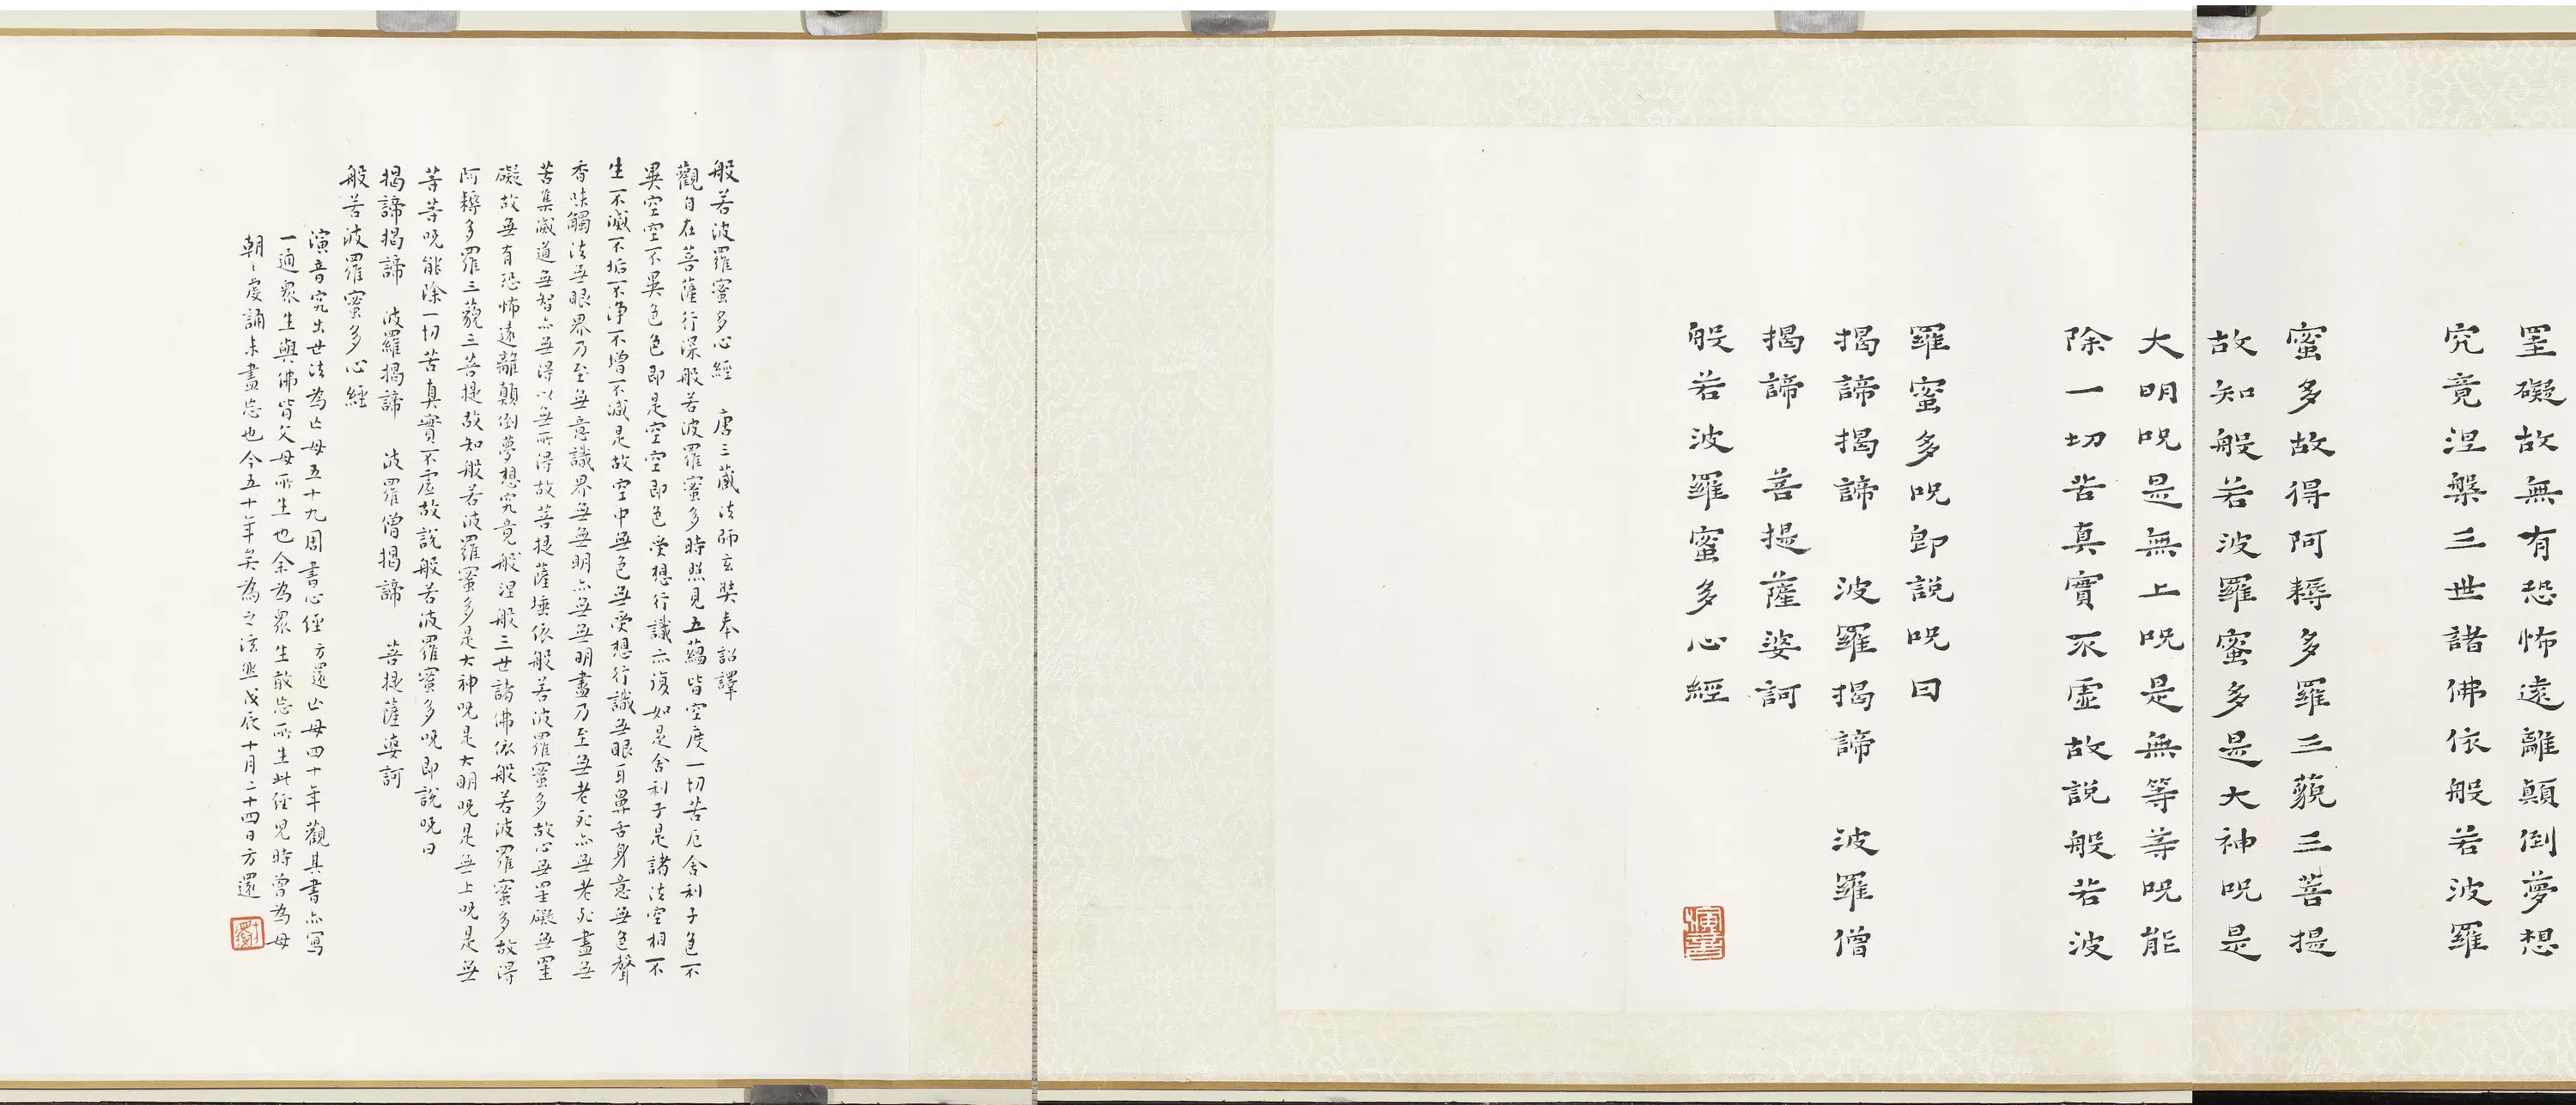 罣礙故無有恐怖遠離顛倒夢想
究竟涅槃三世諸佛依般若波羅
蜜多故得阿耨多羅三藐三菩提
故知般若波羅蜜多是大神呪是
大明呪是無上呪是無等等呪能
除一切苦真實不虛故說般若波
羅蜜多呪即說呪曰
揭諦揭諦 波羅揭諦 波羅僧
揭諦 菩提薩婆訶
般若波羅蜜多心經
般若波羅蜜多心經 唐三藏法師玄奘奉詔譯
觀自在菩薩行深般若波羅蜜多時照見五蘊皆空度一切苦厄舍利子色不
異空空不異色色即是空空即色受想行識亦復如是舍利子是諸法空相不
生不滅不垢不淨不增不減是故空中無色無受想行識無眼耳鼻舌身意無色聲
香味觸法無眼界乃至無意識界無無明亦無無明盡乃至無老死亦無老死盡無
苦集滅道無智亦無得以無所得故菩提薩埵依般若波羅蜜多故心無罣礙無罣
礙故無有恐怖遠離顛倒夢想究竟般涅般三世諸佛依般若波羅蜜多故得
阿耨多羅三藐三菩提故知般若波羅蜜多是大神呪是大明呪是無上呪是無
等等呪能除一切苦真實不虛故說般若波羅蜜多呪即說呪曰
揭諦揭諦 波羅揭諦 波羅僧揭諦 菩提薩婆訶
般若波羅蜜多心經
演音究出世法為亡母五十九周書心經方還亡母四十年觀其書亦寫
一通眾生與佛皆父母所生也余為眾生敢忘所生此經兒時曾為母
朝〻虔誦未盡忘也今五十年矣為之泫然戊辰十月二十四日方還